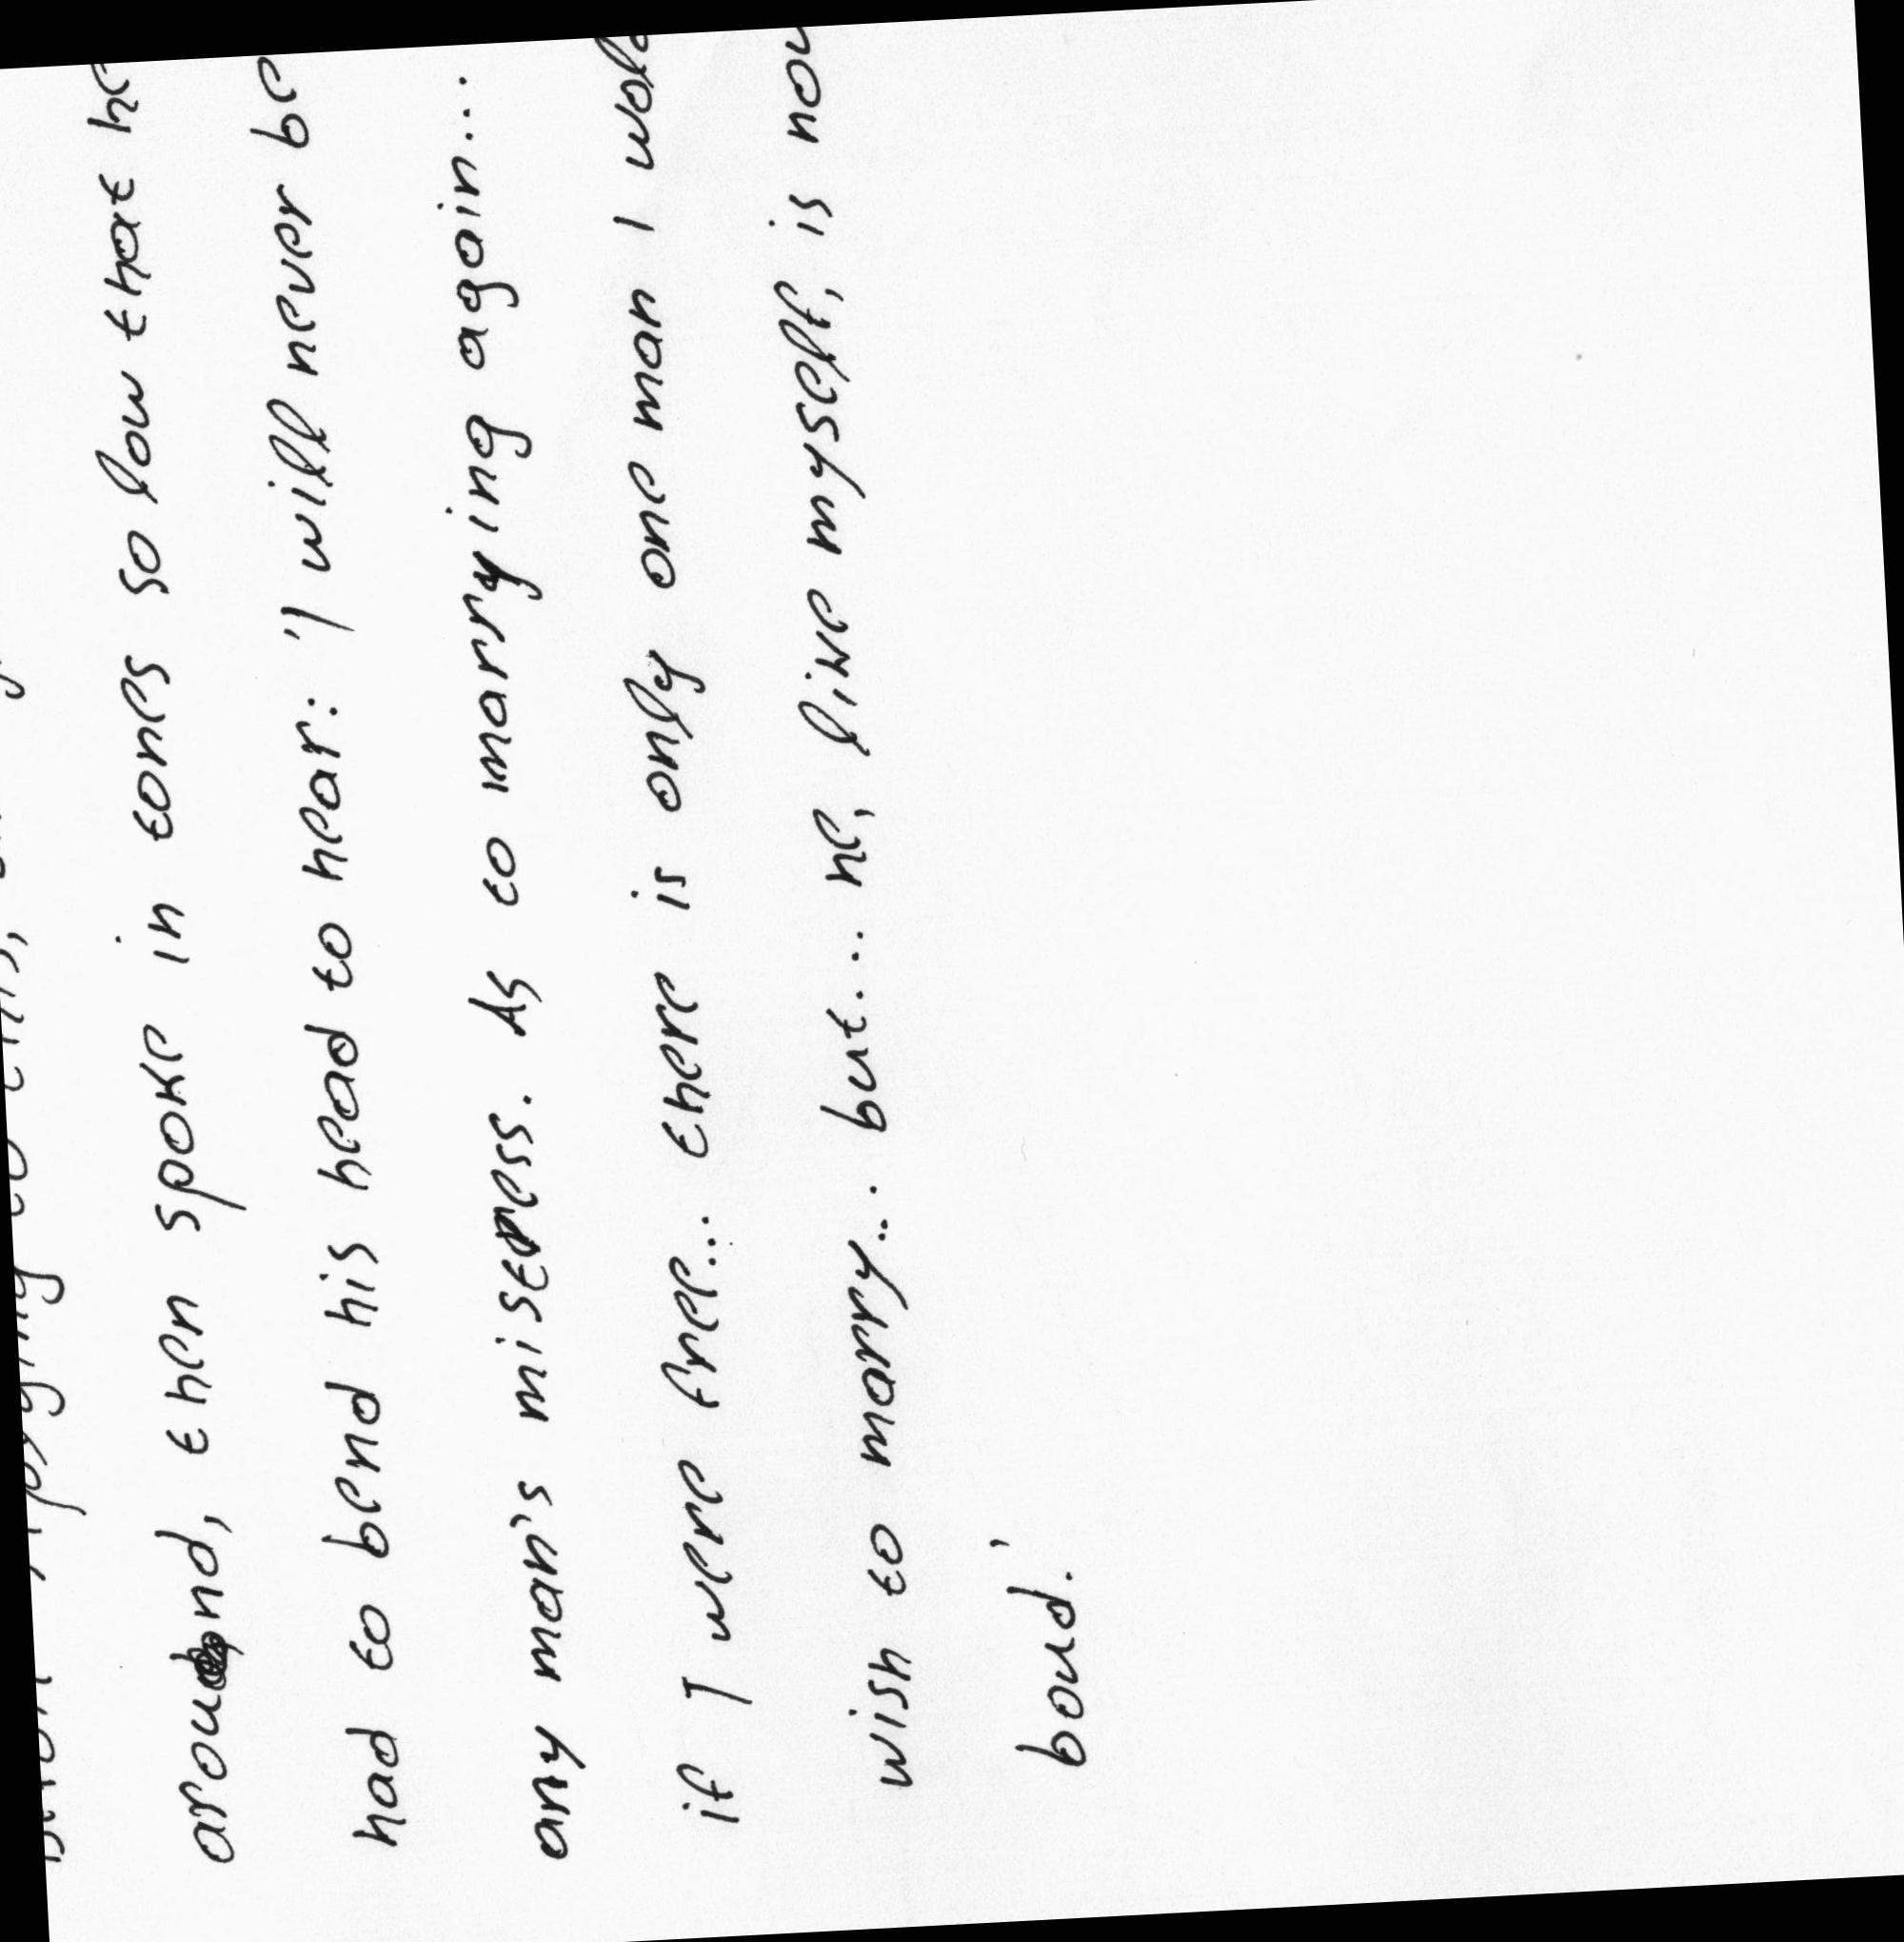 around, then spoke in tones so low that he
had to bend his head to hear: 'I will never be
any man's mistress. As to marrying again...
if I were free... there is only one man I
wish to marry... but... he, like myself, is
boud.'